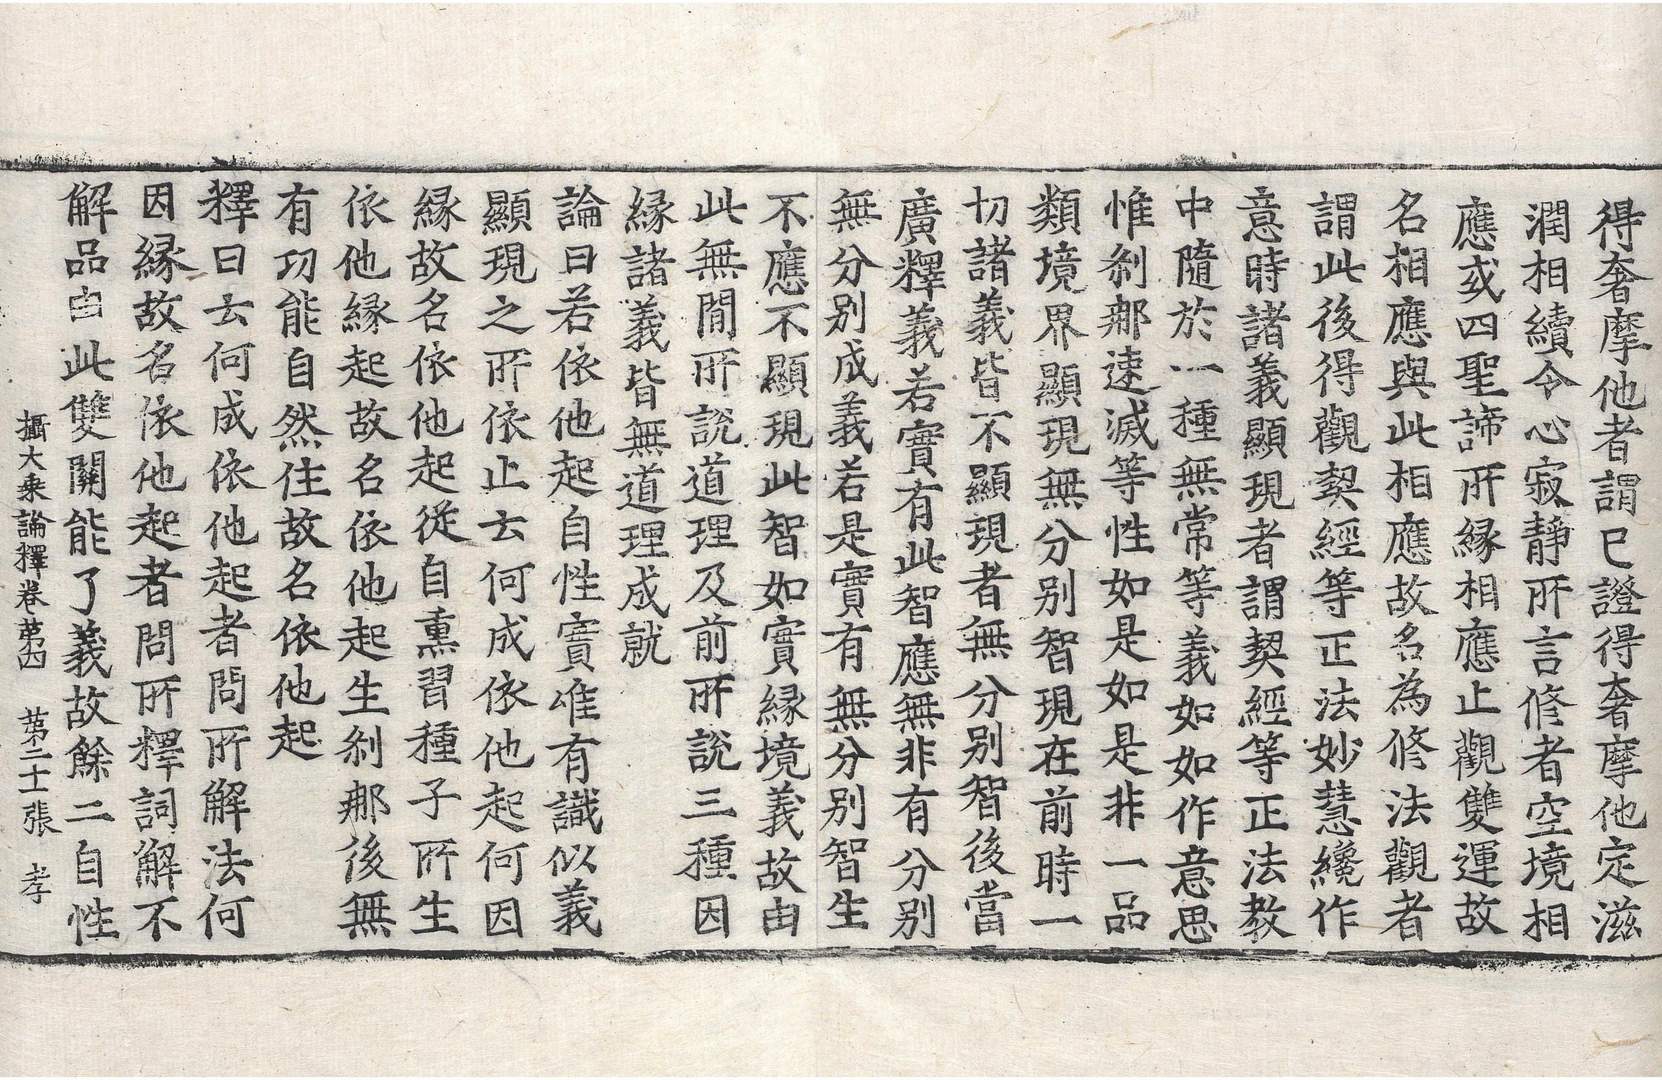 得奢摩他者謂已證得奢摩他定滋
潤相續令心寂靜所言修者空境相
應或四聖諦所緣相應止觀雙運故
名相應與此相應故名為修法觀者
謂此後得觀契經等正法妙慧纔作
意時諸義顯現者謂契經等正法教
中隨於一種無常等義如如作意思
惟剎那速滅等性如是如是非一品
類境界顯現無分別智現在前時一
切諸義皆不顯現者無分別智後當
廣釋義若實有此智應無非有分別
無分別成義若是實有無分別智生
不應不顯現此智如實緣境義故由
此無間所說道理及前所說三種因
緣諸義皆無道理成就
論曰若依他起自性實唯有識似義
顯現之所依止云何成依他起何因
緣故名依他起從自熏習種子所生
依他緣起故名依他起生剎那後無
有功能自然住故名依他起
釋曰云何成依他起者問所解法何
因緣故名依他起者問所釋詞解不
解品由此雙關能了義故餘二自性
攝大乘論釋卷第四 第二十張 孝